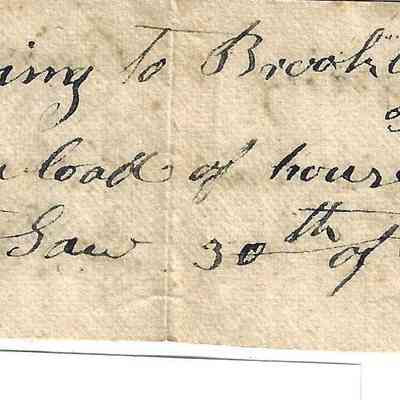 ing to Brook
load of hous
Saw 30th of